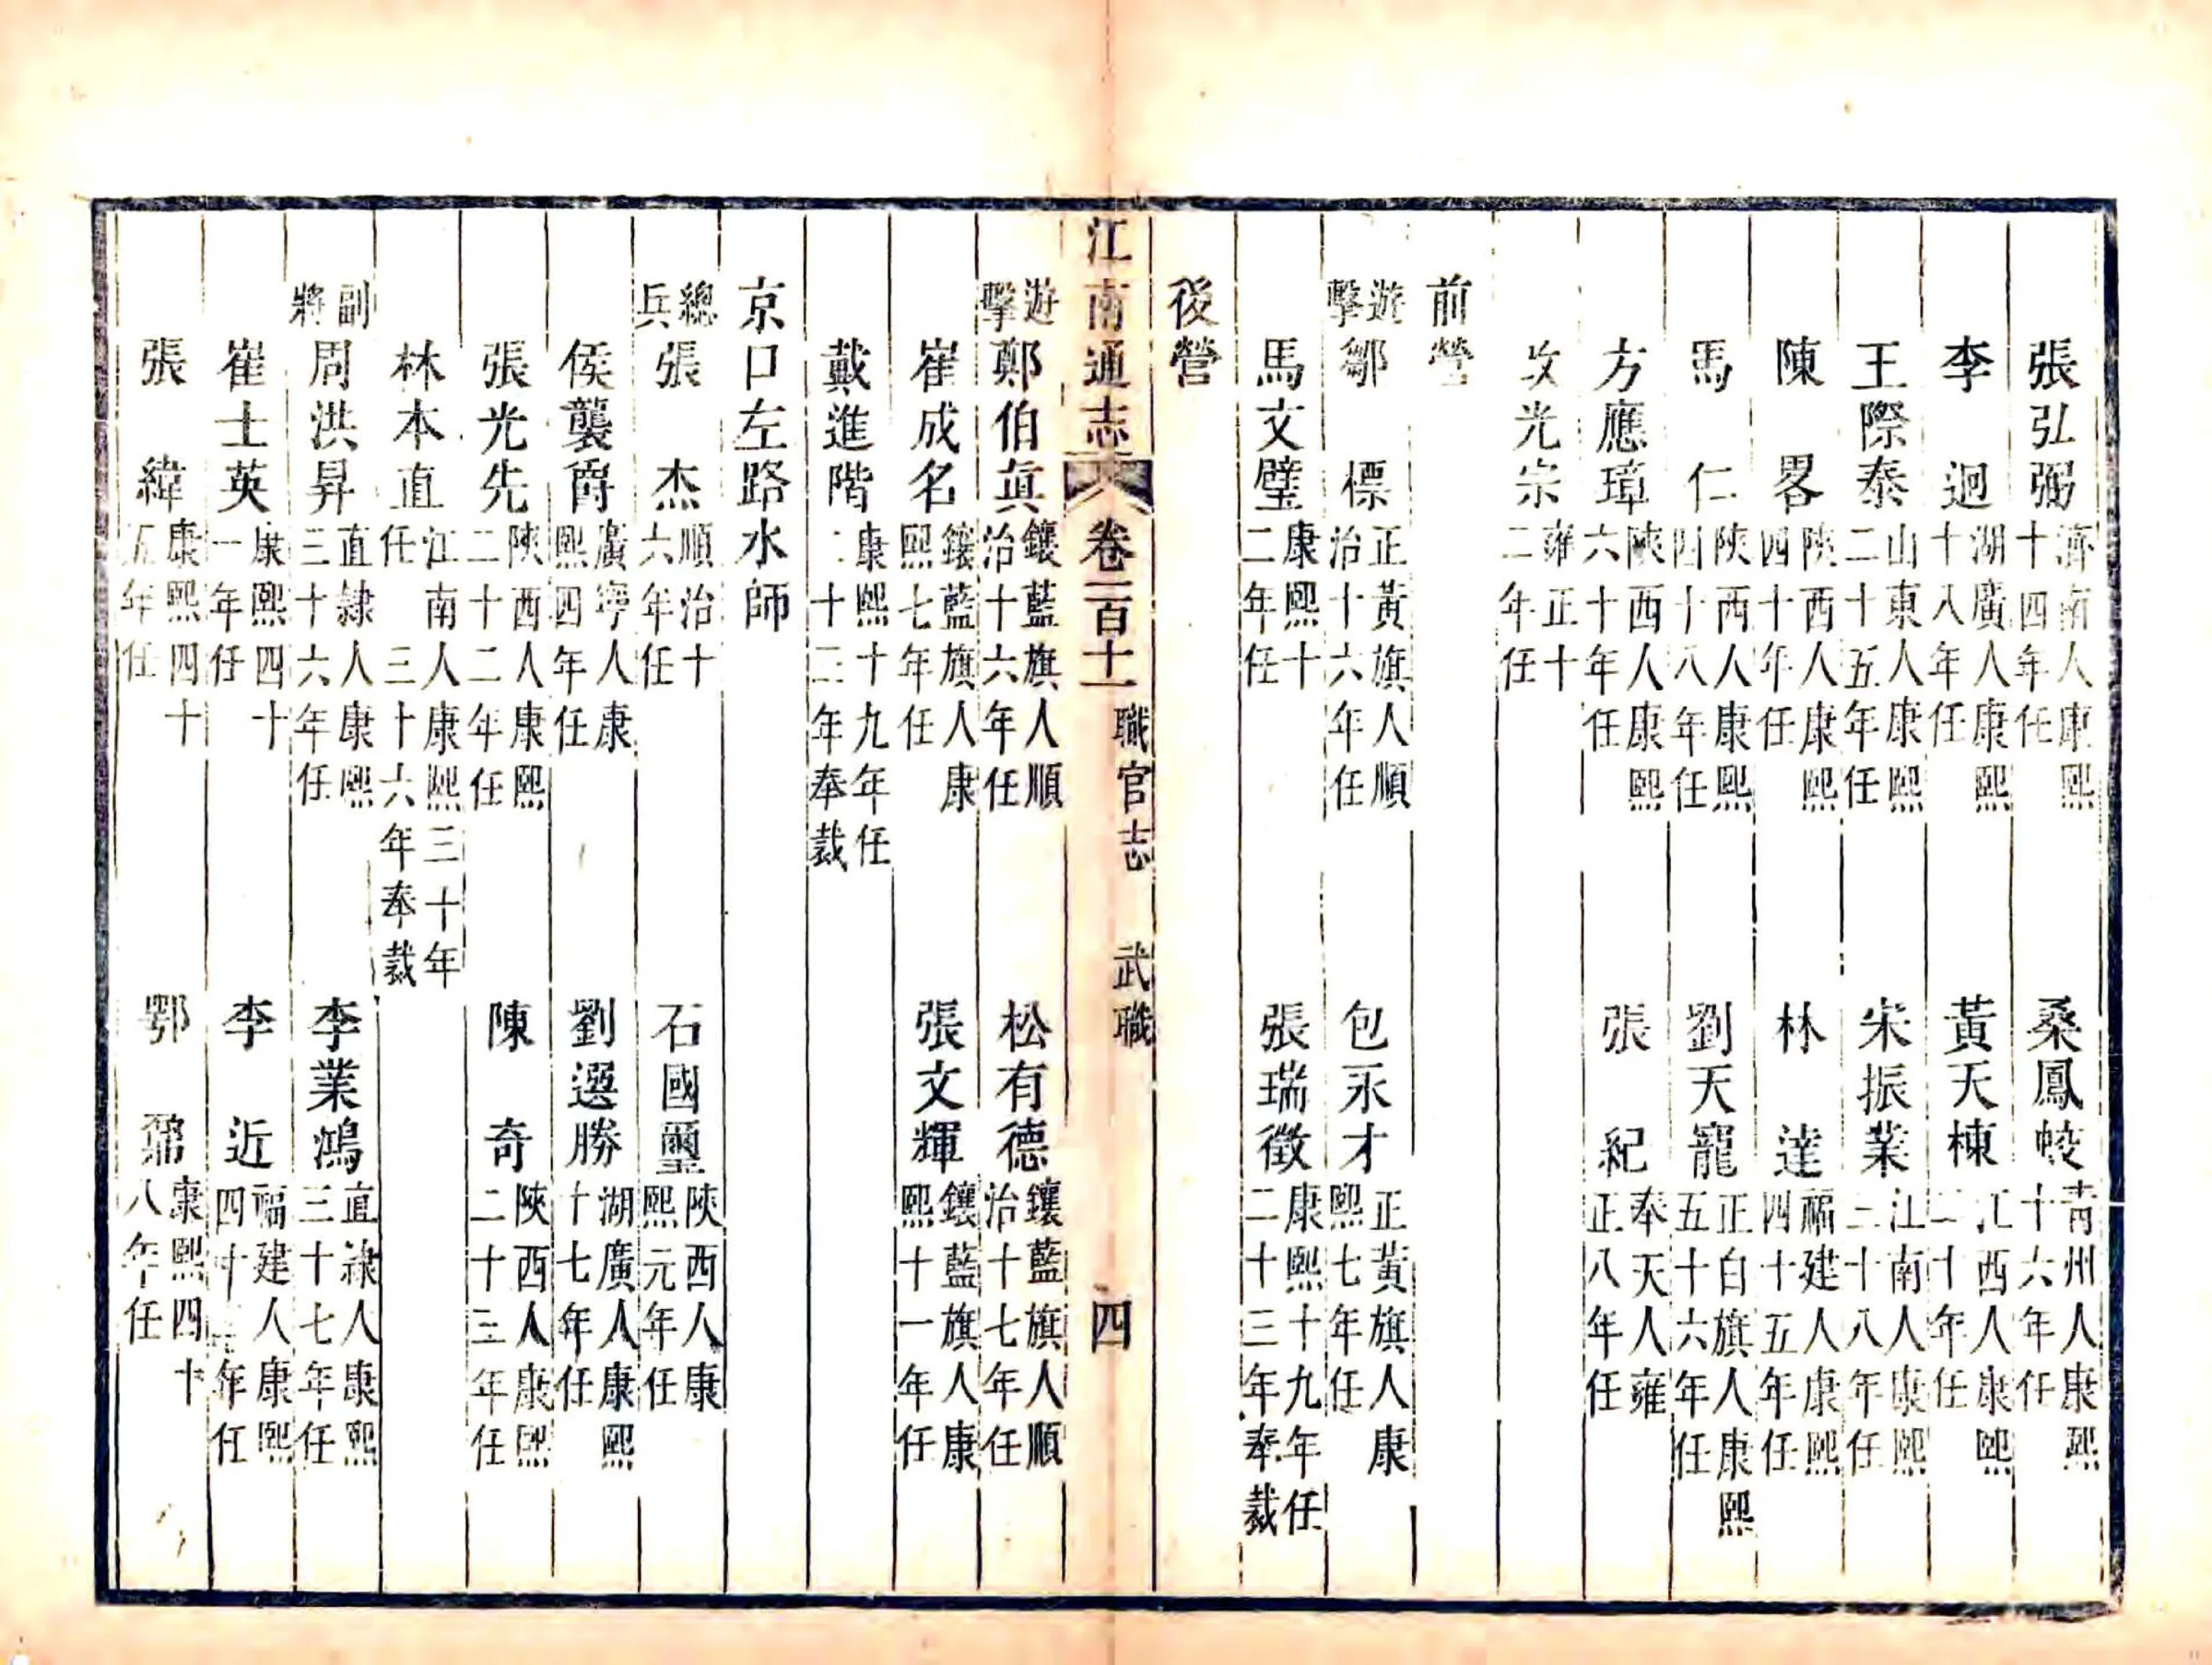 張弘弼濟南人康熙十四年任　桑鳳㡭青州人康熙十六年任
李迥湖廣人康熙十八年任　黃天棟江西人康熙二十年任
王際泰山東人康熙二十五年任　宋振業江南人康熙三十八年任
陳畧陝西人康熙四十年任　林達福建人康熙四十五年任
馬仁陝西人康熙四十八年任　劉天寵正白旗人康熙五十六年任
方應璋陝西人康熙六十年任　張紀奉天人雍正八年任
光宗雍正十二年任
前營
遊擊鄒標正黃旗人順治十六年任　包永才正黃旗人康熙七年任
馬文璧康熙十二年任　張瑞徵康熙十九年任二十三年奉裁
後營
江南通志　卷一百十一　職官志　武職　四
遊擊鄭伯眞鑲藍旗人順治十六年任　松有德鑲藍旗人順治十七年任
崔成名鑲藍旗人康熙七年任　張文輝鑲藍旗人康熙十一年任
戴進階康熙十九年任二十三年奉裁
京口左路水師
總兵張杰順治十六年任　石國璽陝西人康熙元年任
侯襲爵廣寧人康熙四年任　劉選勝湖廣人康熙十七年任
張光先陝西人康熙二十二年任　陳奇陝西人康熙二十三年任
林本直江南人康熙三十年任三十六年奉裁
副將周洪昇直隸人康熙三十六年任　李業鴻直隸人康熙三十七年任
崔士英康熙四十一年任　李近福建人康熙四十年任
張緯康熙四十五年任　鄂鼐康熙四十八年任